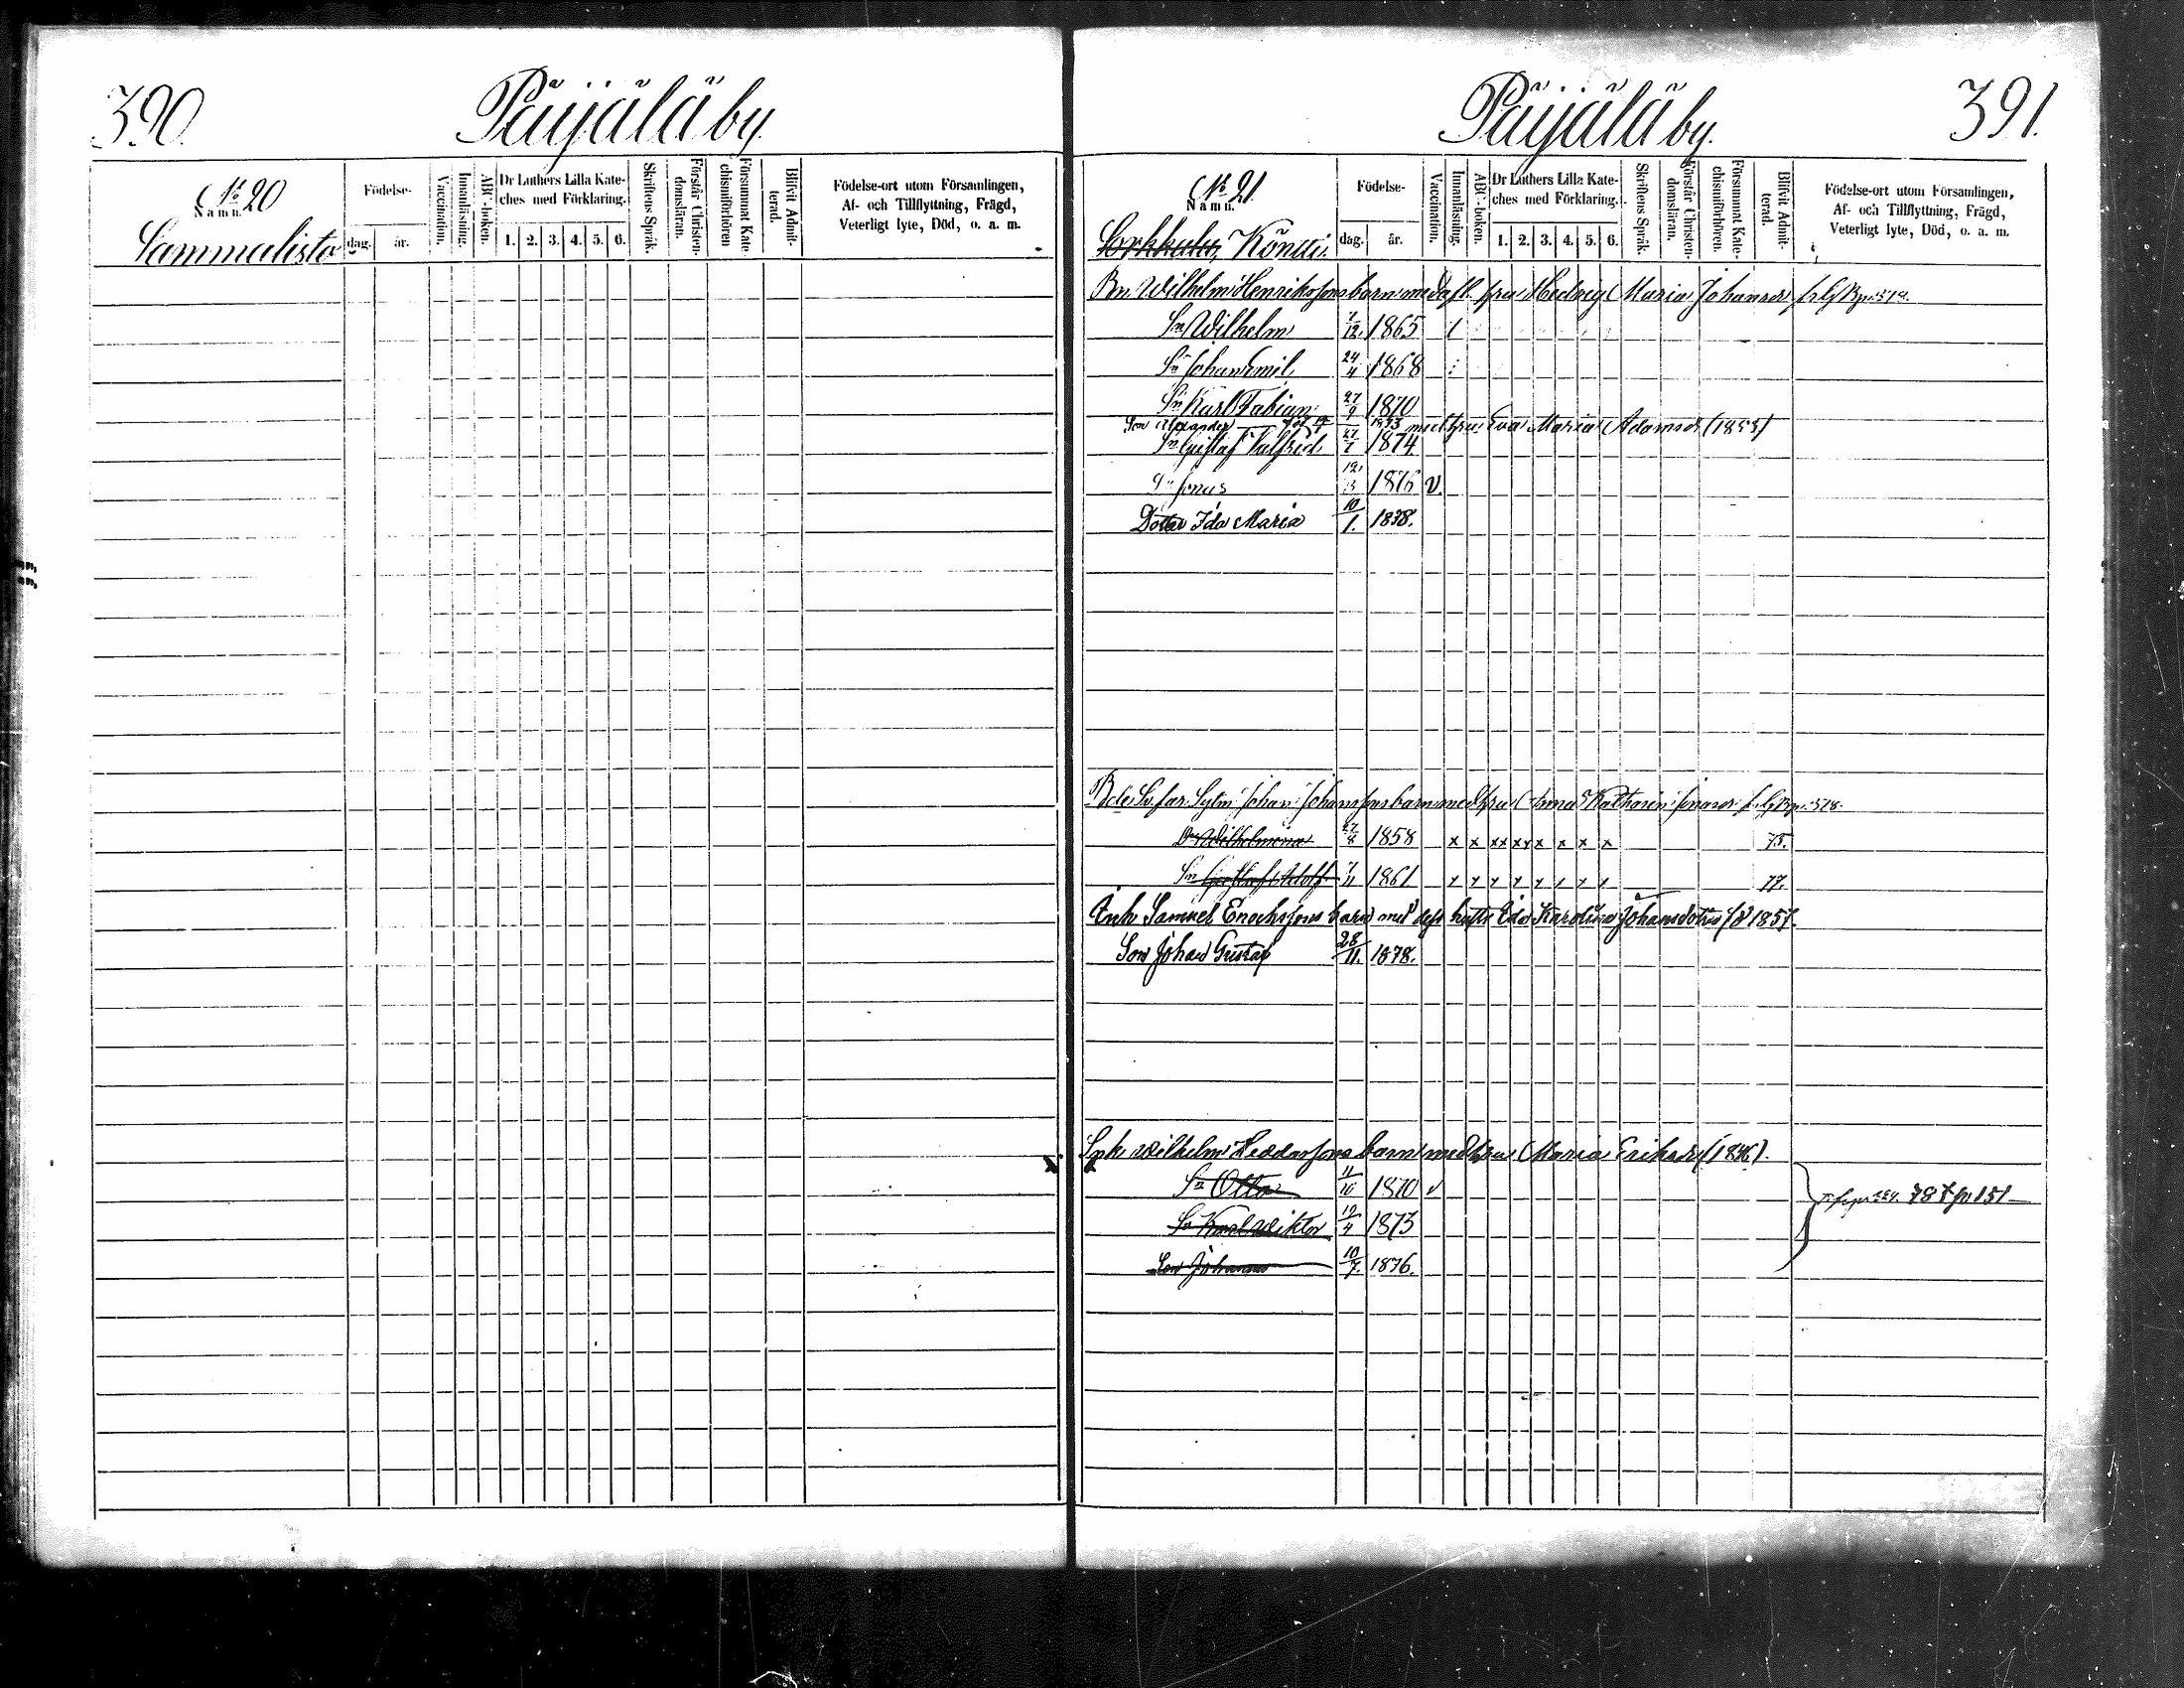 390.
Päijälä by.
№ 20
Namn.
Sammalisto
Födelse-
dag.
år.
Vaccination.
Innanläsning.
ABC-boken.
Dr Luthers Lilla Kate-
ches med Förklaring.
1. 2. 3. 4. 5. 6.
Skriftens Språk.
Förstår Christen-
domsläran.
Försummat Kate-
chismiförhören
Blifvit Admit-
terad.
Födelse-ort utom Församlingen,
Af- och Tillflyttning, Frägd,
Veterligt lyte, Död, o. a. m.
Päijälä by.
391.
№ 21.
Namn.
Könni.
Födelse-
dag.
år.
Vaccination.
Innanläsning.
ABC-boken.
Dr Luthers Lilla Kate-
ches med Förklaring.
1. 2. 3. 4. 5. 6.
Skriftens Språk.
Förstår Christen-
domsläran.
Försummat Kate-
chismiförhören.
Blifvit Admit-
terad.
Födelse-ort utom Församlingen,
Af- och Tillflyttning, Frägd,
Veterligt lyte, Död, o. a. m.
Bn. Wilhelm Henrikssons barn med hru Hedvig Maria Johansdr
Sn Wilhelm 1865
Sn Johan Emil 24/4 1868
Sn Karl Fabian 27/9 1870
Son Alexander med hru Eva Maria Adamsdr
Sn Gustaf 1874
Sn Jonas 1876 v
Dotter Ida Maria 10/1. 1878.
Johan Johanssons barn med hru Anna Katharin
Dr Wilhelmina 27/8 1858 x x xx xx x x x x 75.
Sn Gustaf Adolf 1861 x x x x x x x x 77.
Samuel Enochssons barn med dess hustru Eda Karolina Johansdotter
Son Johan Gustaf 28/11. 1878.
Wilhelm barn med hru Maria Eriksdr (1846).
Sn Otto 11/10 1870 v
Sn Karl Wiktor 19/4 1873
Son Johannes 10/7. 1876.